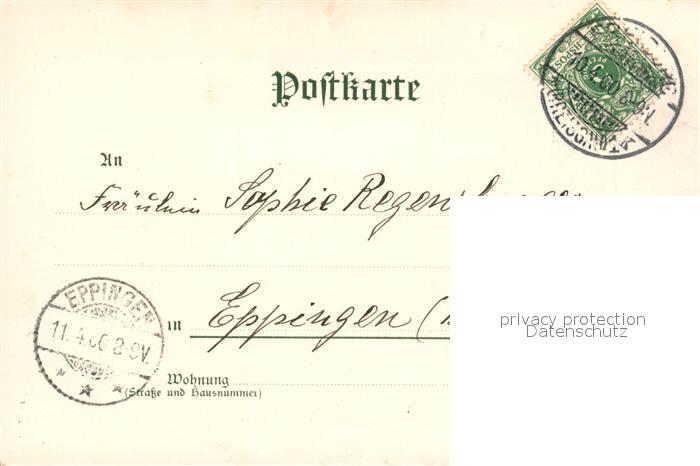 Postkarte
An
Fräulein Sophie
EPPINGEN
11.4.00 8-9V.
in Eppingen (
privacy protection
Datenschutz
Wohnung
(Straße und Hausnummer)